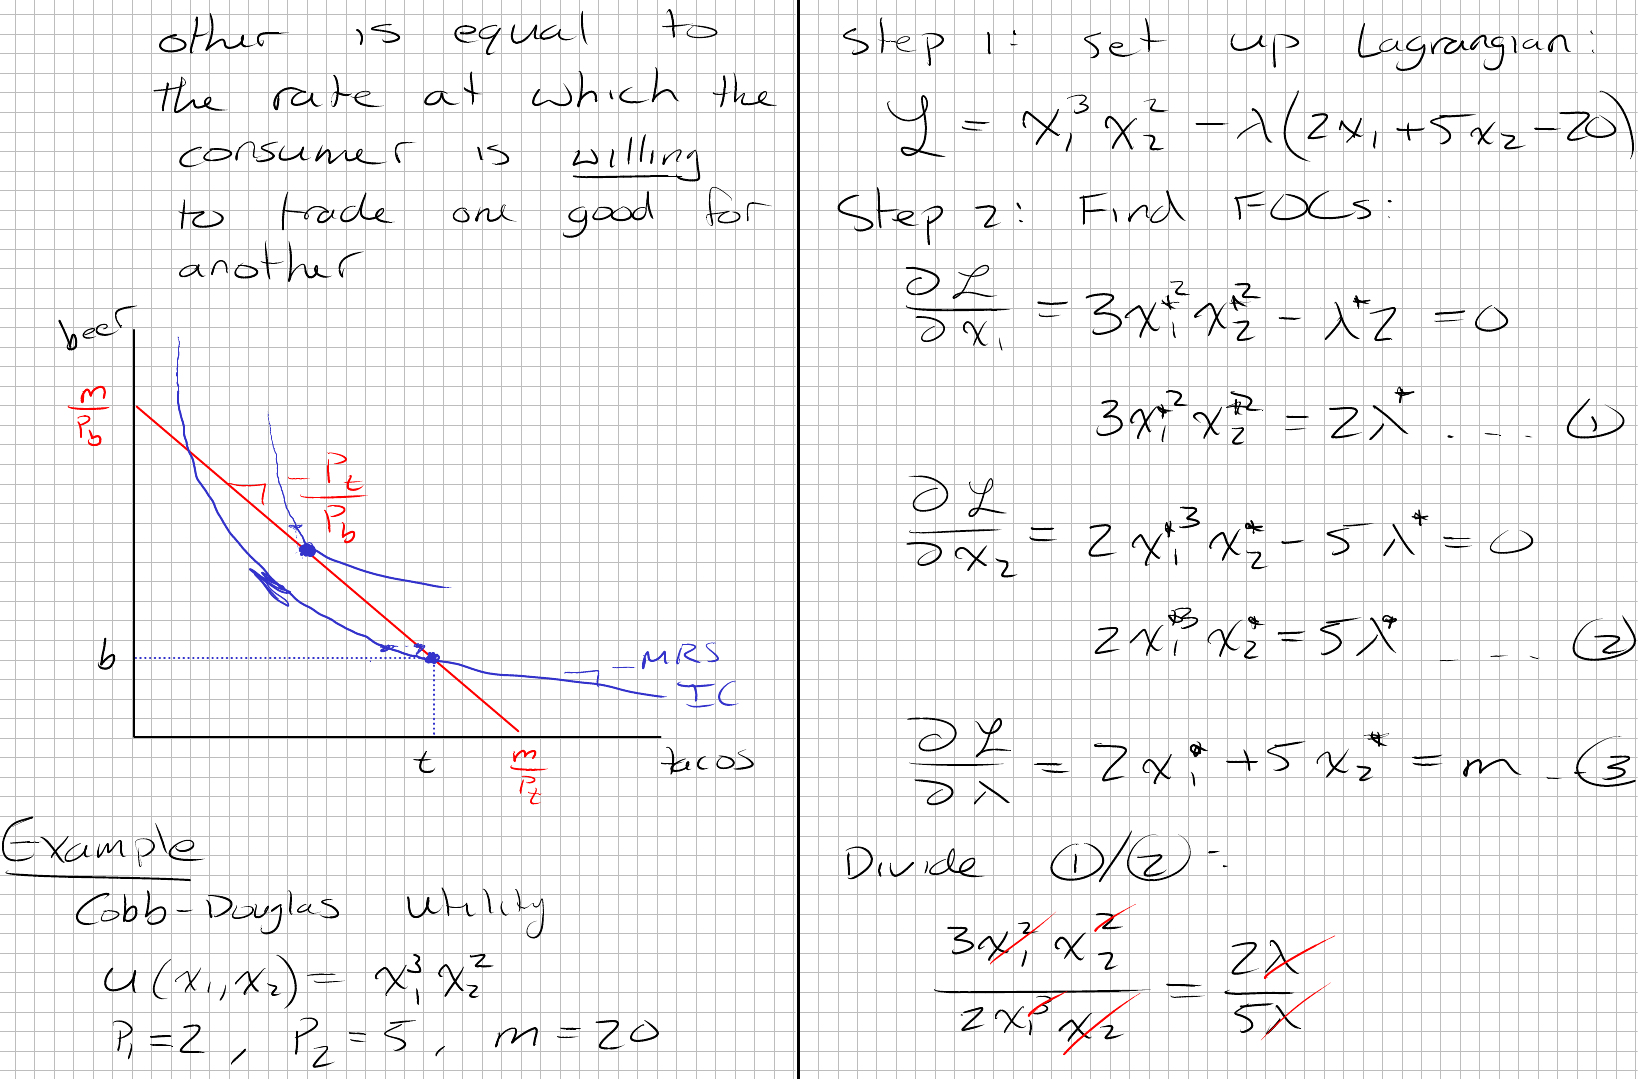 other is equal to
the rate at which the
consumer is willing
to trade one good for
another
beer
m/P_b
-P_t/P_b
b
-MRS
IC
t
m/P_t
tacos
Example
Cobb-Douglas Utility
u(x₁,x₂) = x₁³ x₂²
P₁ = 2, P₂ = 5, m = 20
Step 1: set up Lagrangian:
ℒ = x₁³ x₂² - λ(2x₁ + 5x₂ - 20)
Step 2: Find FOCs:
∂ℒ/∂x₁ = 3x₁*² x₂*² - λ*2 = 0
3x₁*² x₂*² = 2λ* . - - . . ①
∂ℒ/∂x₂ = 2x₁*³ x₂* - 5λ* = 0
2x₁*³ x₂* = 5λ* - - - . ②
∂ℒ/∂λ = 2x₁* + 5x₂* = m - - ③
Divide ①/②:
3x₁² x₂² / 2x₁³ x₂ = 2λ / 5λ